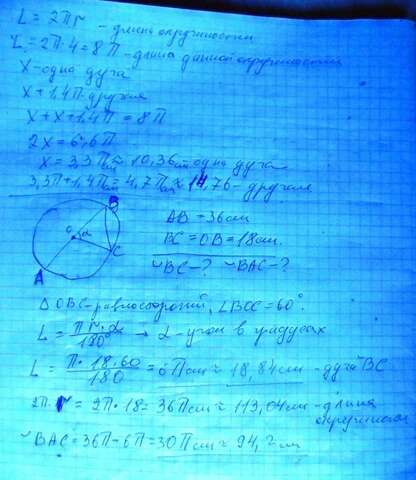 L = 2πr - длина окружности
L = 2π·4 = 8π - длина данной окружности
X - одна дуга
X + 1,4π - другая
X + X + 1,4π = 8π
2X = 6,6π
X = 3,3π см ≈ 10,36 см одна дуга
3,3π + 1,4π = 4,7π см ≈ 14,76 - другая
B
O α
C
A
AB = 36 см
BC = OB = 18 см.
◡BC - ? ◡BAC - ?
△OBC - равносторонний, ∠BOC = 60°.
L = πr·α/180° → α - угол в градусах
L = π·18·60/180 = 6π см ≈ 18,84 см - дуга BC
2π·r = 2π·18 = 36π см ≈ 113,04 см - длина
окружности
◡BAC = 36π - 6π = 30π см ≈ 94,2 см